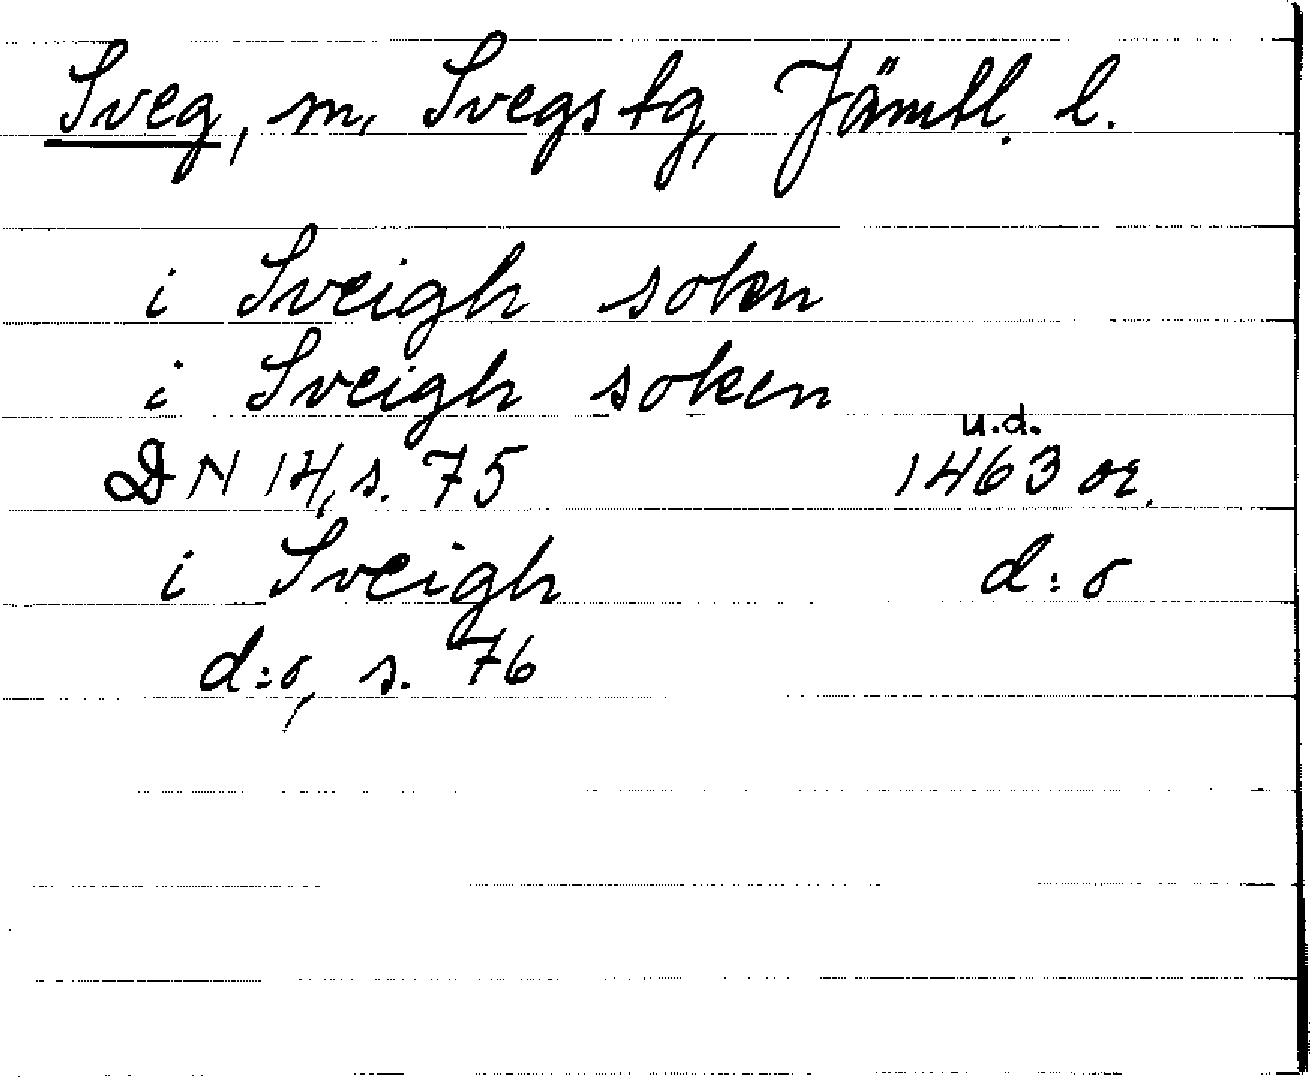 Sveg, m, Svegs tg, Jämtl. l.
i Sveigh sokn
i Sveigh soken
u.d.
DN 14, s. 75 1463 or.
i Sveigh d:o
d:o, s. 76